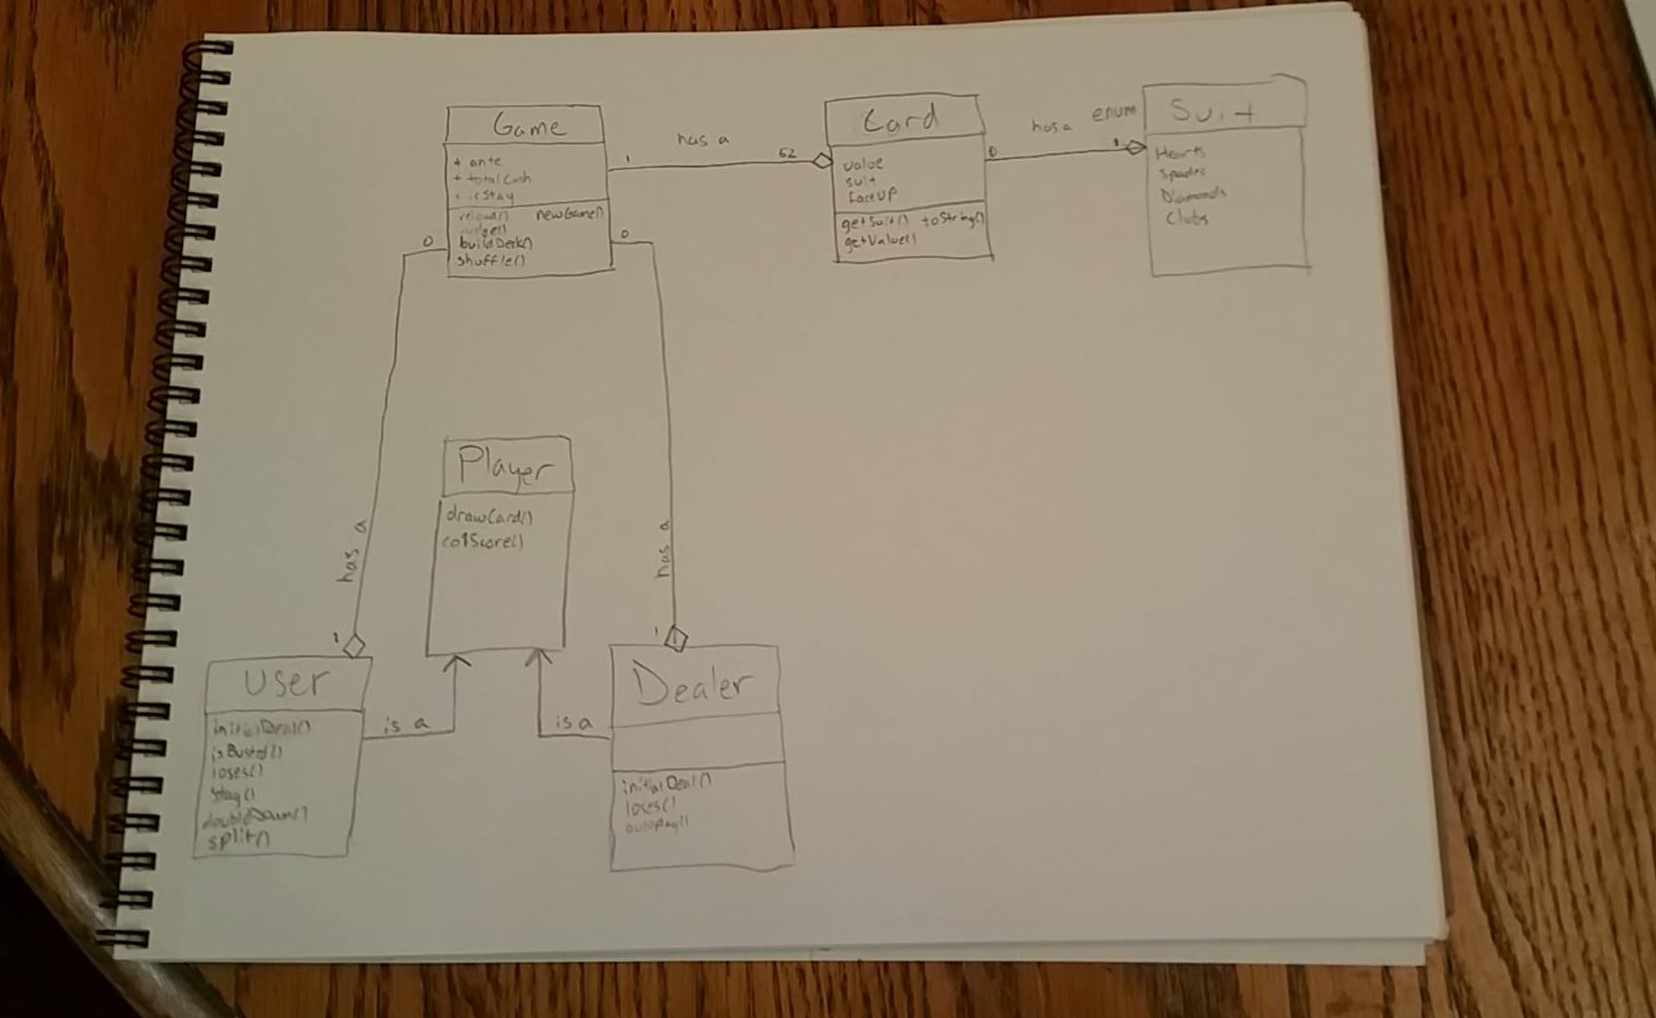 Game
+ ante
+ totalCash
reload() newGame()
buildDeck()
shuffle()
1 has a 52
Card
value
suit
faceUP
getSuit() toString()
getValue()
0 has a 1
enum Suit
Hearts
Spades
Diamonds
Clubs
0
0
has a
has a
1
1
Player
drawCard()
User
initialDeal()
isBusted()
loses()
stay()
doubleDown()
split()
is a
is a
Dealer
initialDeal()
loses()
autoplay()